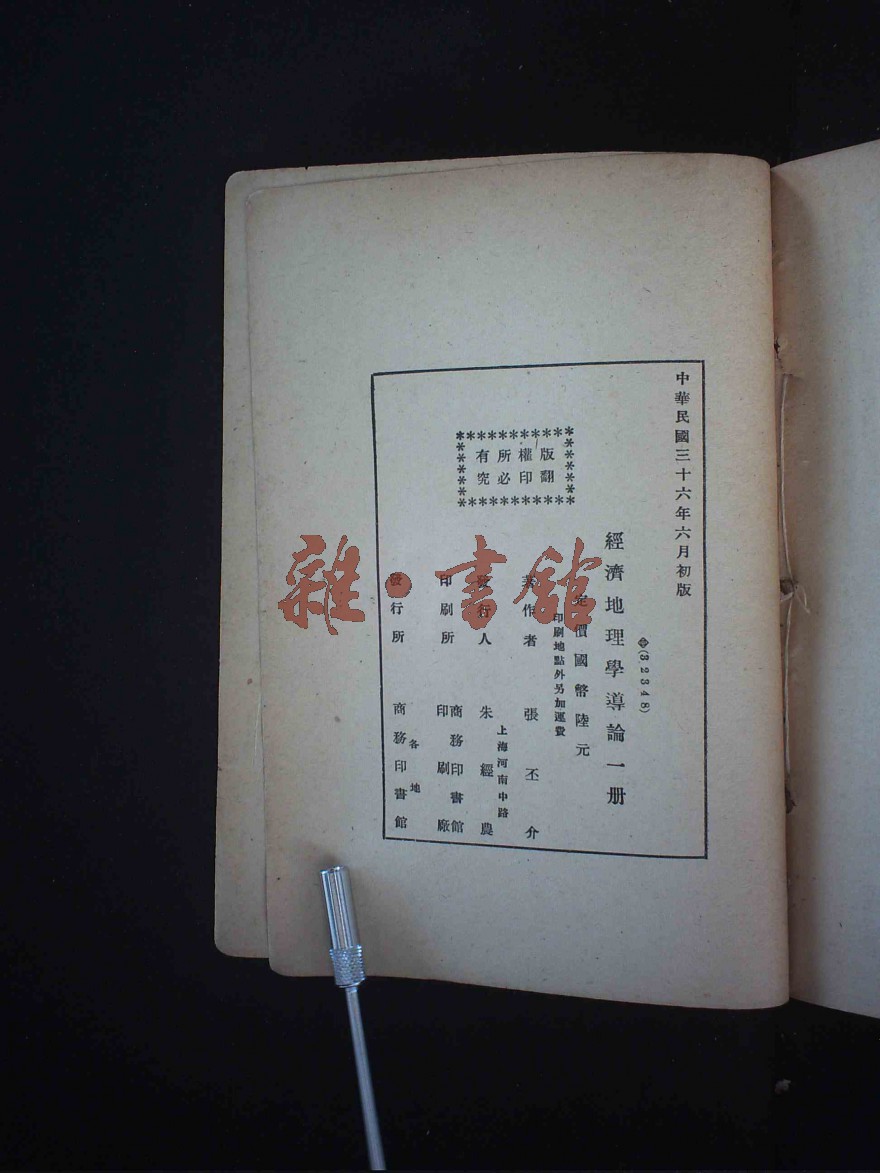 中華民國三十六年六月初版
(32348)
經濟地理學導論一册
定價國幣陸元
印刷地點外另加運費
版權所有
翻印必究
著作者 張丕介
上海河南中路
發行人 朱經農
印刷所 商務印書館印刷廠
各地
發行所 商務印書館
雜·書館